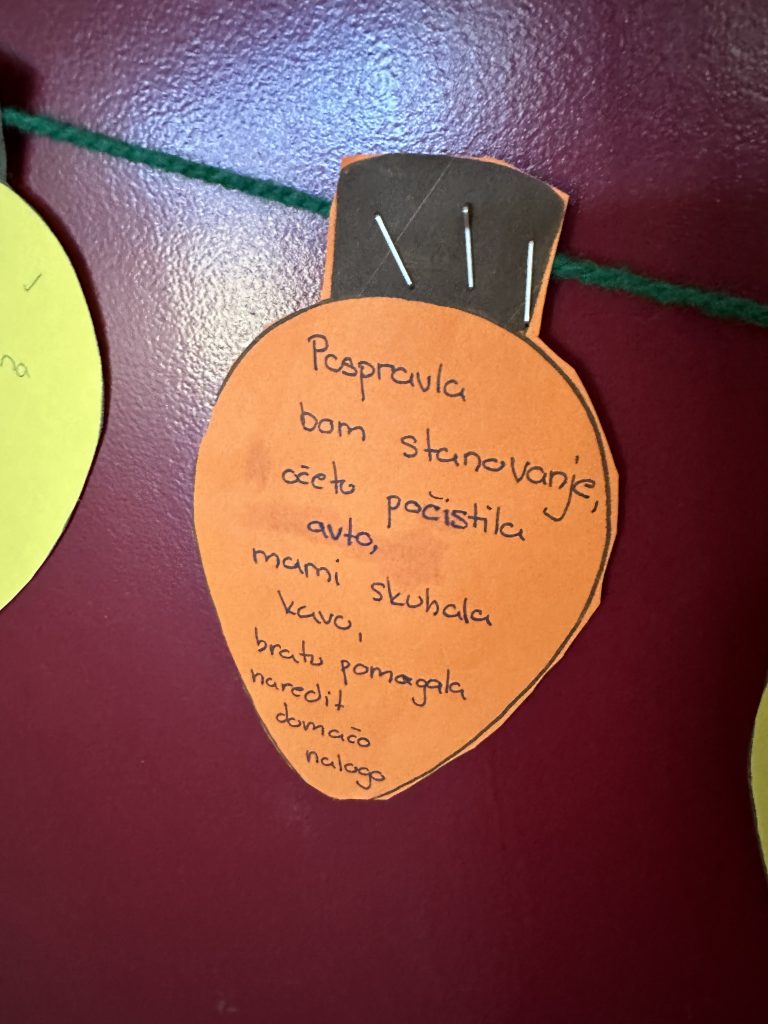 Pospravla
bom stanovanje,
očetu počistila
avto,
mami skuhala
kavo,
bratu pomagala
naredit
domačo
nalogo
na